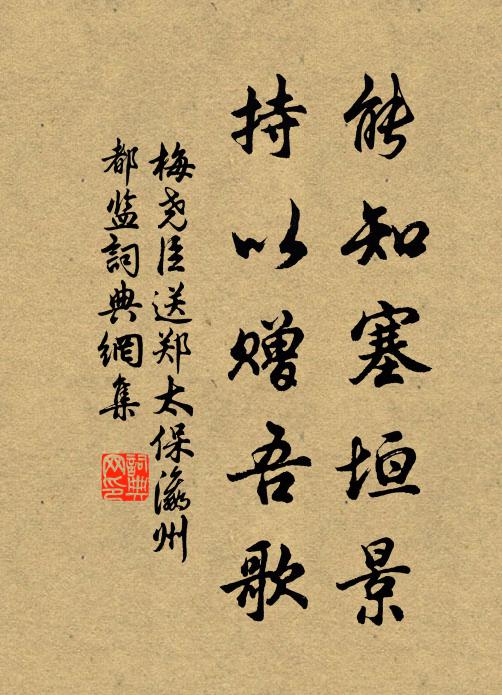 能知塞垣景
持以赠吾歌
梅尧臣送郑太保瀛州
都监詞典網集
詞典
网印